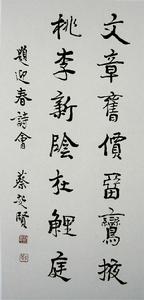 文章舊價留鸞掖
桃李新陰在鯉庭
題迎春詩會
蔡廷賢